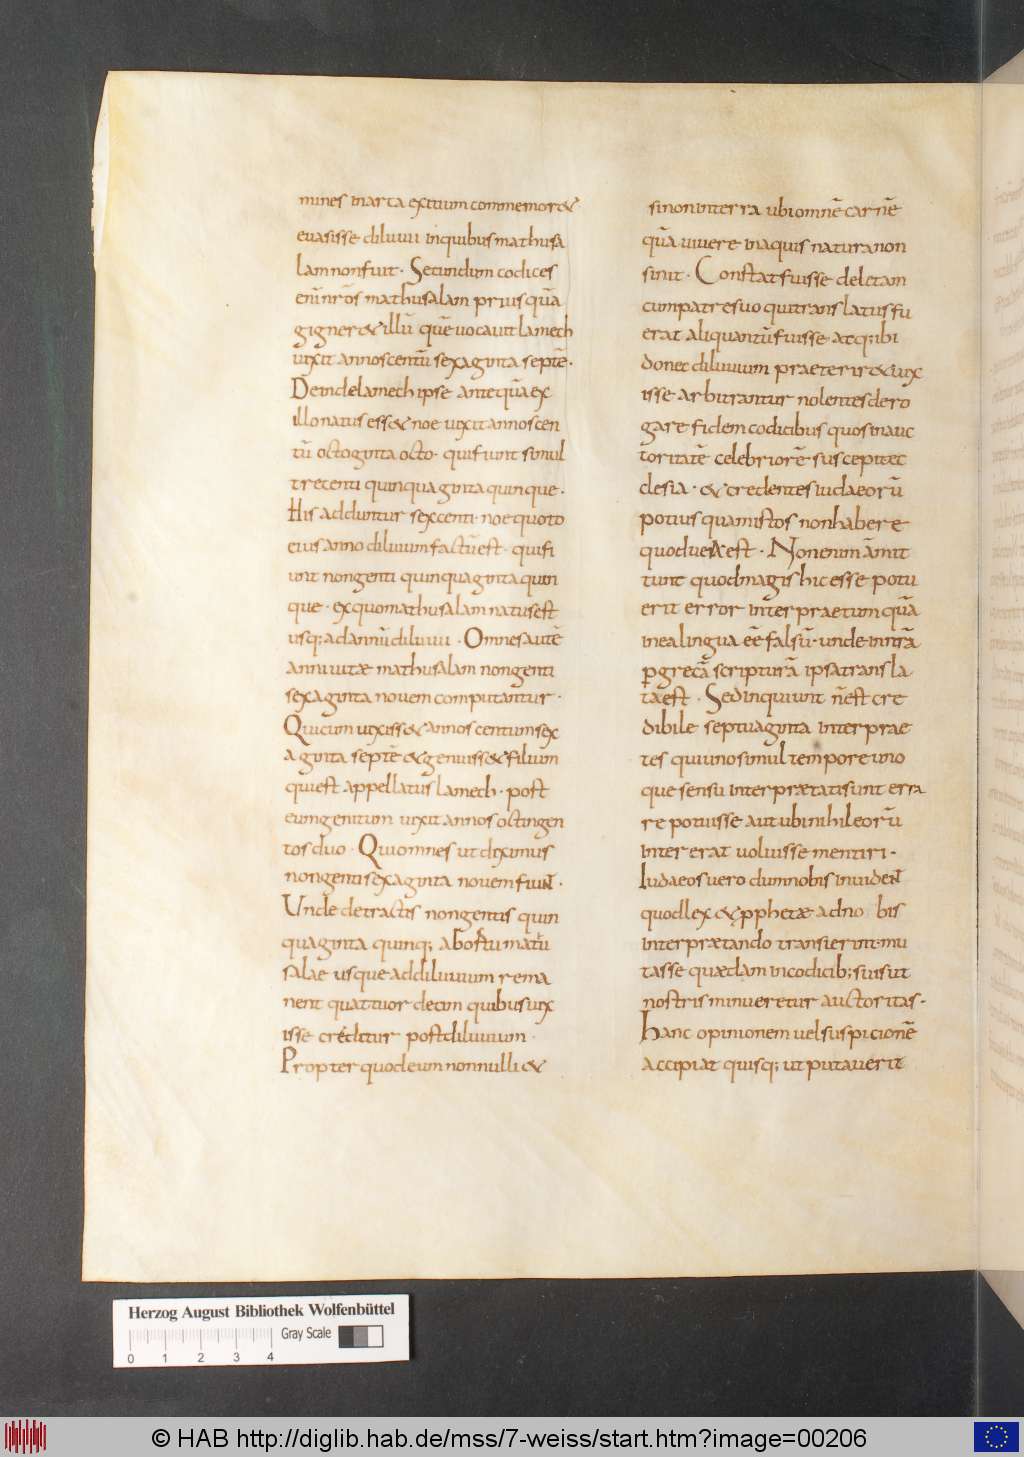 mines inarca exitium commemor&
euasisse diluuii inquibus mathusa
lam nonfuit · Secundum codices
eni̅ nr̅os mathusalam prius qua̅
gigner& illu̅ que̅ uocauit lamech
uixit annos centu̅ sexaginta septe̅ ·
Deinde lamech ipse antequa̅ ex
illo natus ess& noe uixit annos cen
tu̅ octoginta octo · qui fiunt simul
trecenti quinquaginta quinque ·
His adduntur sexcenti · noe quoto
eius anno diluuium factu̅ est · qui fi
unt nongenti quinquaginta quin
que · exquo mathusalam natus est
usq; ad annu̅ diluuii · Omnes aute̅
anni uitae mathusalam nongenti
sexaginta nouem computantur ·
Qui cum uixiss& annos centum sex
aginta septe̅ & genuiss& filium
qui est appellatus lamech · post
eum genitum uixit annos octingen
tos duo · Qui omnes ut diximus
nongenti sexaginta nouem fiunt ·
Unde detractis nongentis quin
quaginta quinq; abortu matu
salae usque addiluuium rema
nent quattuor decim quibus uix
isse creditur post diluuium ·
Propter quod eum nonnulli &
sinon interra ubi omne̅ carne̅
qua̅ uiuere inaquis natura non
sinit · Constat fuisse deletam
cum patre suo qui translatus fu
erat aliquantu̅ fuisse atq; ibi
donec diluuium praeterir& uix
isse arbitrantur nolentes dero
gare fidem codicibus quos inauc
toritate̅ celebriore̅ suscepit ec
clesia · & credentes iudaeoru̅
potius quam istos non habere
quod uerum est · Non enim a̅mit
tunt quod magis hic esse potu
erit error interpraetum qua̅
inea lingua ee̅ falsu̅ · unde innra̅
p̱ greca̅ scriptura̅ ipsa transla
ta est · Sed inquiunt n̅ est cre
dibile septuaginta interprae
tes qui uno simul tempore uno
que sensu interpraetati sunt erra
re potuisse aut ubi nihil eoru̅
intererat uoluisse mentiri ·
Iudaeos uero dum nobis inuident
quod lex & p̱phetae adno bis
interpraetando transierint · mu
tasse quaedam incodicib; suis ut
nostris minueretur auctoritas ·
hanc opinionem uel suspicione̅
accipiat quisq; ut putauerit
Herzog August Bibliothek Wolfenbüttel
Gray Scale
0 1 2 3 4
© HAB http://diglib.hab.de/mss/7-weiss/start.htm?image=00206